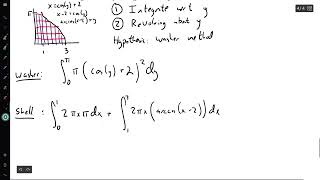 x=cos(y)+2
x-2=cos(y)
arccos(x-2)=y
π
1 3
① Integrate wrt y
② Revolving about y
Hypothesis: washer method
washer: ∫₀^π π(cos(y)+2)²dy
shell: ∫₀¹ 2πxπdx + ∫₁³ 2πx(arccos(x-2))dx